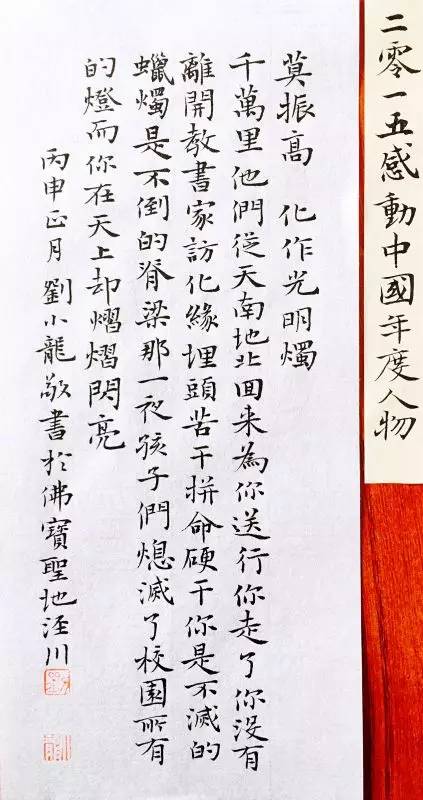 二零一五感動中國年度人物
莫振高 化作光明燭
千萬里他們從天南地北回来為你送行你走了你没有
離開教書家訪化緣埋頭苦干拼命硬干你是不滅的
蠟燭是不倒的脊梁那一夜孩子們熄滅了校園所有
的燈而你在天上却熠熠閃亮
丙申正月劉小龍敬書於佛寶聖地泾川